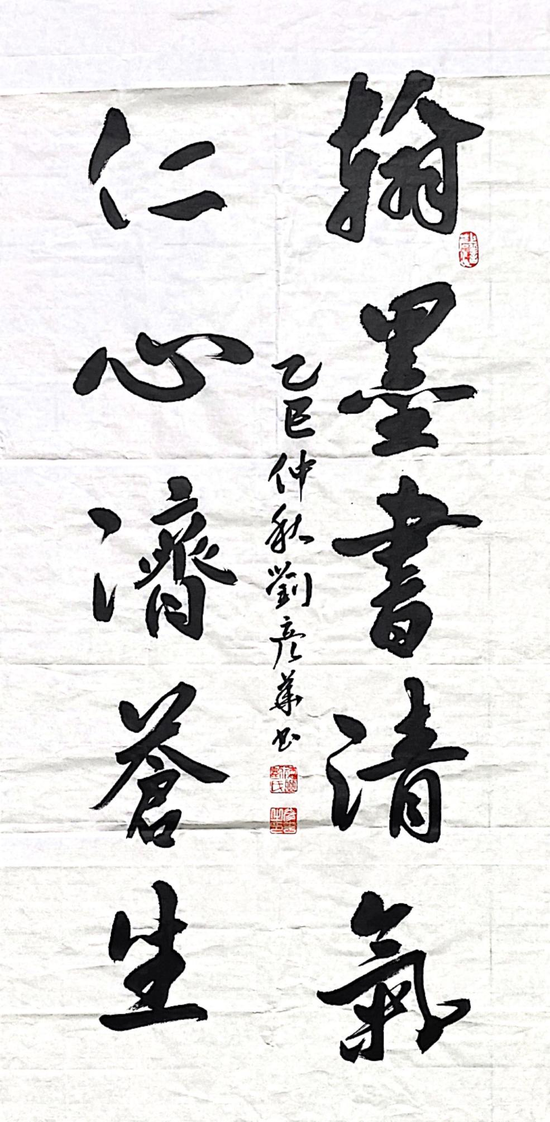 翰墨書清氣
仁心濟蒼生
乙巳仲秋劉彦華书